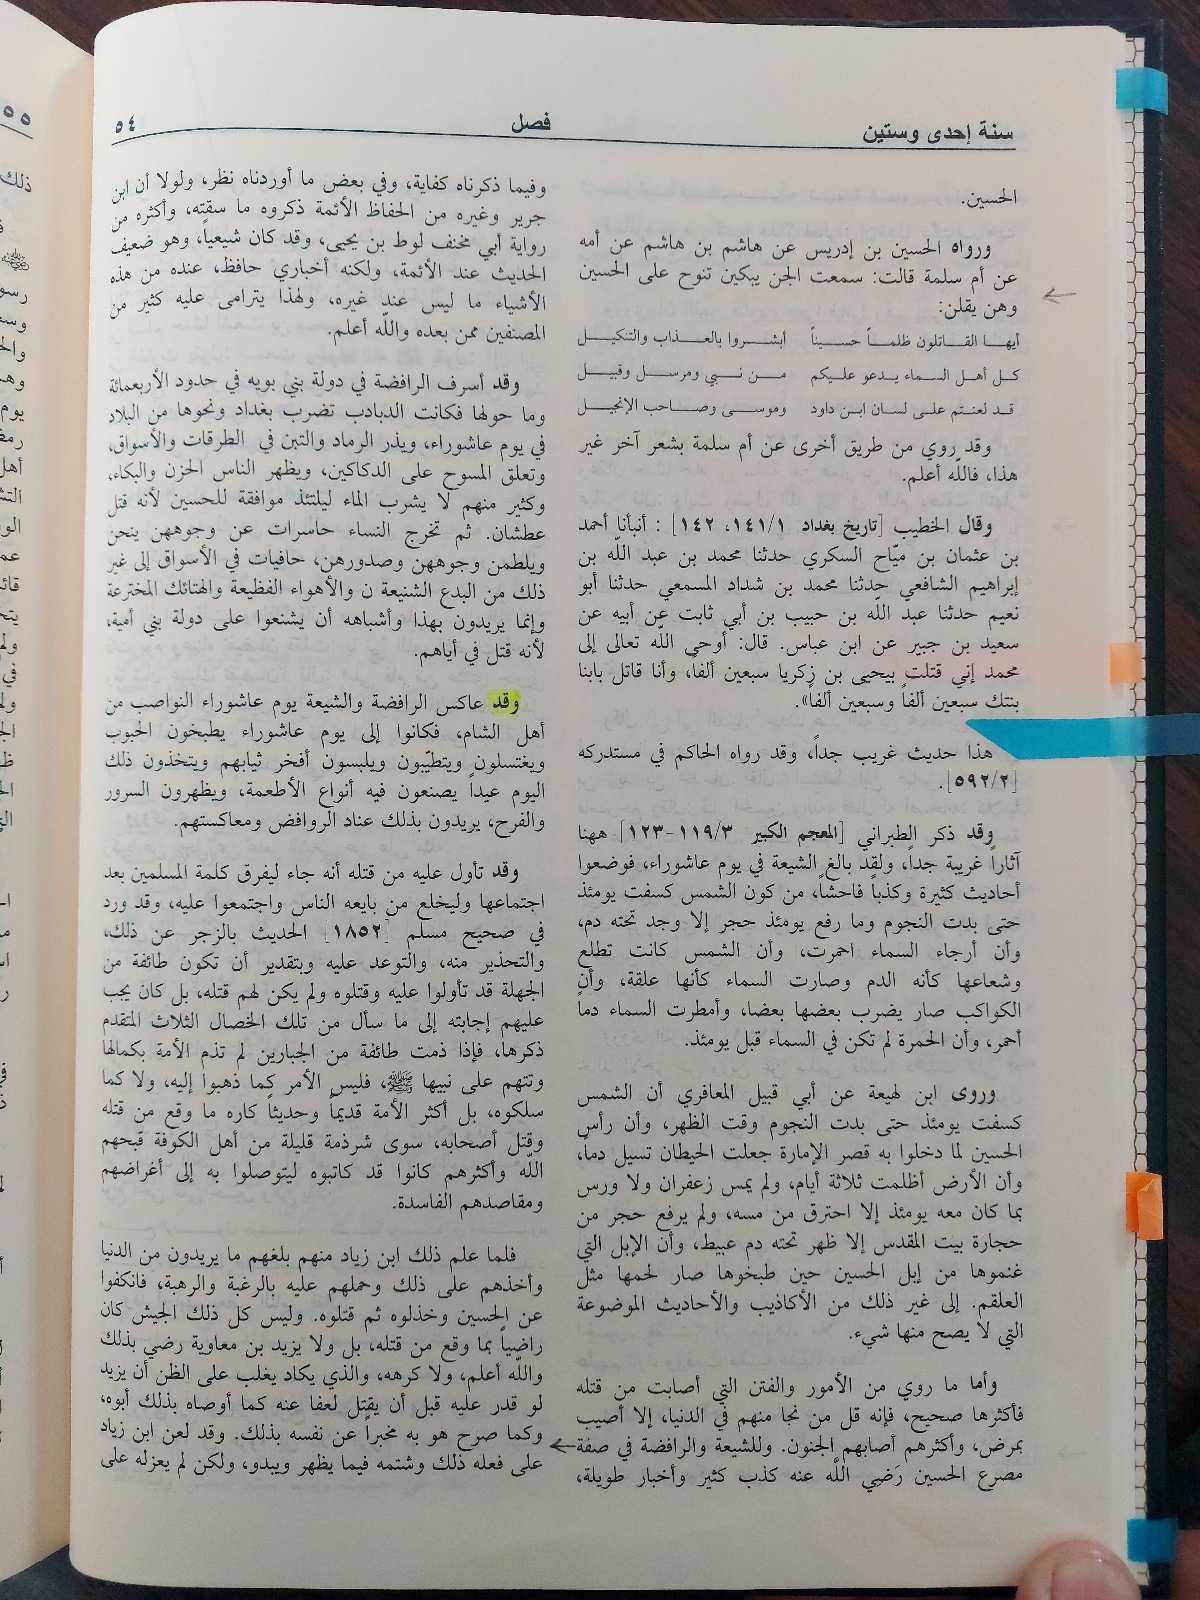 سنة إحدى وستين
فصل
٥٤
الحسين.
ورواه الحسين بن إدريس عن هاشم بن هاشم عن أمه
عن أم سلمة قالت: سمعت الجن يبكين تنوح على الحسين
وهن يقلن:
أيهـا القـاتلون ظلمـاً حسـيناً أبشـروا بالعـذاب والتنكيـل
كـل أهـل السـماء يـدعو عليـكم مـن نـبي ومرسـل وقبيـل
قـد لعنـتم علـى لسـان ابـن داود وموسـى وصـاحب الإنجيـل
وقد روي من طريق أخرى عن أم سلمة بشعر آخر غير
هذا، فاللّه أعلم.
وقال الخطيب [تاريخ بغداد ١٤١/١، ١٤٢] : أنبأنا أحمد
بن عثمان بن ميّاح السكري حدثنا محمد بن عبد اللّه بن
إبراهيم الشافعي حدثنا محمد بن شداد المسمعي حدثنا أبو
نعيم حدثنا عبد اللّه بن حبيب بن أبي ثابت عن أبيه عن
سعيد بن جبير عن ابن عباس. قال: أوحى اللّه تعالى إلى
محمد إني قتلت بيحيى بن زكريا سبعين ألفاً، وأنا قاتل بابنا
بنتك سبعين ألفاً وسبعين ألفاً».
هذا حديث غريب جداً، وقد رواه الحاكم في مستدركه
[٥٩٢/٢].
وقد ذكر الطبراني [المعجم الكبير ١١٩/٣-١٢٣] ههنا
آثاراً غريبة جداً، ولقد بالغ الشيعة في يوم عاشوراء، فوضعوا
أحاديث كثيرة وكذباً فاحشاً، من كون الشمس كسفت يومئذ
حتى بدت النجوم وما رفع يومئذ حجر إلا وجد تحته دم،
وأن أرجاء السماء احمرت، وأن الشمس كانت تطلع
وشعاعها كأنه الدم وصارت السماء كأنها علقة، وأن
الكواكب صار يضرب بعضها بعضا، وأمطرت السماء دماً
أحمر، وأن الحمرة لم تكن في السماء قبل يومئذ.
وروى ابن لهيعة عن أبي قبيل المعافري أن الشمس
كسفت يومئذ حتى بدت النجوم وقت الظهر، وأن رأس
الحسين لما دخلوا به قصر الإمارة جعلت الحيطان تسيل دماً،
وأن الأرض أظلمت ثلاثة أيام، ولم يمس زعفران ولا ورس
بما كان معه يومئذ إلا احترق من مسه، ولم يرفع حجر من
حجارة بيت المقدس إلا ظهر تحته دم عبيط، وأن الإبل التي
غنموها من إبل الحسين حين طبخوها صار لحمها مثل
العلقم. إلى غير ذلك من الأكاذيب والأحاديث الموضوعة
التي لا يصح منها شيء.
وأما ما روي من الأمور والفتن التي أصابت من قتله
فأكثرها صحيح، فإنه قل من نجا منهم في الدنيا، إلا أصيب
بمرض، وأكثرهم أصابهم الجنون. وللشيعة والرافضة في صفة
مصرع الحسين رَضِي اللَّه عنه كذب كثير وأخبار طويلة،
وفيما ذكرناه كفاية، وفي بعض ما أوردناه نظر، ولولا أن ابن
جرير وغيره من الحفاظ الأئمة ذكروه ما سقته، وأكثره من
رواية أبي مخنف لوط بن يحيى، وقد كان شيعياً، وهو ضعيف
الحديث عند الأئمة، ولكنه أخباري حافظ، عنده من هذه
الأشياء ما ليس عند غيره، ولهذا يترامى عليه كثير من
المصنفين ممن بعده واللّه أعلم.
وقد أسرف الرافضة في دولة بني بويه في حدود الأربعمائة
وما حولها فكانت الدبادب تضرب بغداد ونحوها من البلاد
في يوم عاشوراء، ويذر الرماد والتبن في الطرقات والأسواق،
وتعلق المسوح على الدكاكين، ويظهر الناس الحزن والبكاء،
وكثير منهم لا يشرب الماء ليلتئذ موافقة للحسين لأنه قتل
عطشان. ثم تخرج النساء حاسرات عن وجوههن ينحن
ويلطمن وجوههن وصدورهن، حافيات في الأسواق إلى غير
ذلك من البدع الشنيعة ن والأهواء الفظيعة والهتائك المخترعة
وإنما يريدون بهذا وأشباهه أن يشنعوا على دولة بني أمية،
لأنه قتل في أياهم.
وقد عاكس الرافضة والشيعة يوم عاشوراء النواصب من
أهل الشام، فكانوا إلى يوم عاشوراء يطبخون الحبوب
ويغتسلون ويتطيّبون ويلبسون أفخر ثيابهم ويتخذون ذلك
اليوم عيداً يصنعون فيه أنواع الأطعمة، ويظهرون السرور
والفرح، يريدون بذلك عناد الروافض ومعاكستهم.
وقد تأول عليه من قتله أنه جاء ليفرق كلمة المسلمين بعد
اجتماعها وليخلع من بايعه الناس واجتمعوا عليه، وقد ورد
في صحيح مسلم [١٨٥٢] الحديث بالزجر عن ذلك،
والتحذير منه، والتوعد عليه وبتقدير أن تكون طائفة من
الجهلة قد تأولوا عليه وقتلوه ولم يكن لهم قتله، بل كان يجب
عليهم إجابته إلى ما سأل من تلك الخصال الثلاث المتقدم
ذكرها، فإذا ذمت طائفة من الجبارين لم تذم الأمة بكمالها
وتتهم على نبيها ﷺ، فليس الأمر كما ذهبوا إليه، ولا كما
سلكوه، بل أكثر الأمة قديماً وحديثاً كاره ما وقع من قتله
وقتل أصحابه، سوى شرذمة قليلة من أهل الكوفة قبحهم
اللّه وأكثرهم كانوا قد كاتبوه ليتوصلوا به إلى أغراضهم
ومقاصدهم الفاسدة.
فلما علم ذلك ابن زياد منهم بلغهم ما يريدون من الدنيا
وأخذهم على ذلك وحملهم عليه بالرغبة والرهبة، فانكفوا
عن الحسين وخذلوه ثم قتلوه. وليس كل ذلك الجيش كان
راضياً بما وقع من قتله، بل ولا يزيد بن معاوية رضي بذلك
واللّه أعلم، ولا كرهه، والذي يكاد يغلب على الظن أن يزيد
لو قدر عليه قبل أن يقتل لعفا عنه كما أوصاه بذلك أبوه،
وكما صرح هو به مخبراً عن نفسه بذلك. وقد لعن ابن زياد
على فعله ذلك وشتمه فيما يظهر ويبدو، ولكن لم يعزله على